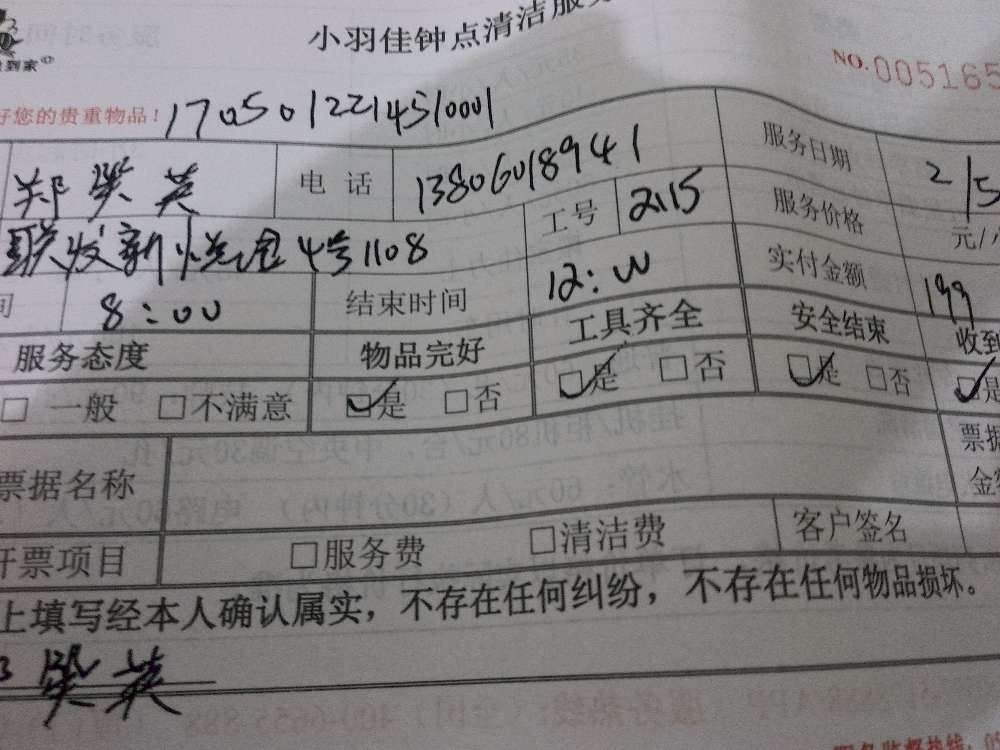 小羽佳钟点清洁服务
到家
NO.005165
好您的贵重物品! 1705012214510001
郑 英 电 话 13806018941 服务日期 2/5
联发新 4号1108 工号 2115 服务价格 元/
间 8:00 结束时间 12:00 实付金额 199
服务态度 物品完好 工具齐全 安全结束 收到
□ 一般 □不满意 ☑是 □否 ☑是 □否 ☑是 □否 ☑是
票据名称 票据
金额
开票项目 □服务费 □清洁费 客户签名
上填写经本人确认属实，不存在任何纠纷，不存在任何物品损坏。
英